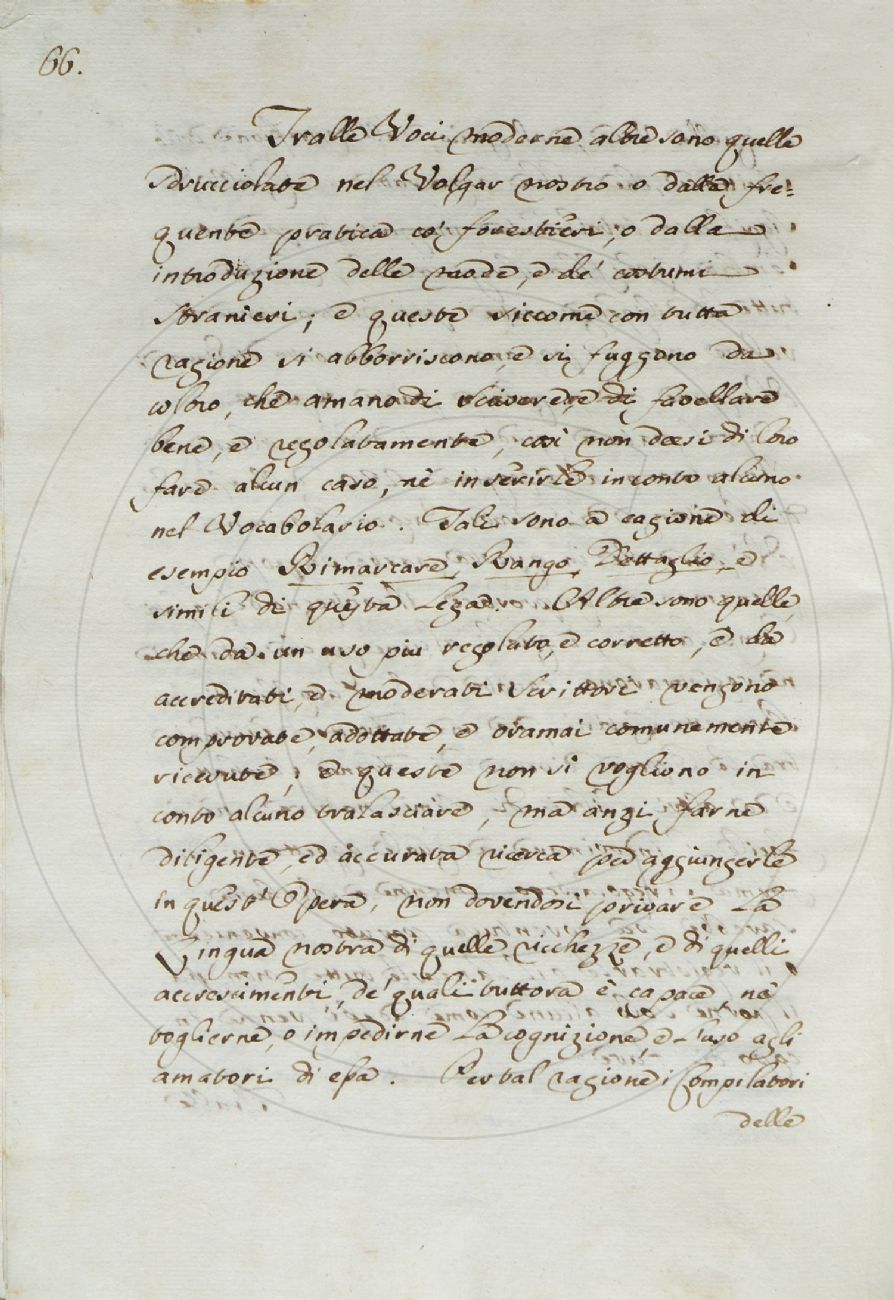 66.
Tralle Voci moderne altre sono quelle
sdrucciolate nel Volgar nostro o dalla fre=
quente pratica co' forestieri, o dalla
introduzione delle mode, e de' costumi
stranieri; e queste siccome con tutta
ragione si abborriscono, e si fuggono da
coloro, che amano di scivere, e di favellare
bene, e regolatamente, così non deesi di loro
fare alcun caso, nè inserirle in conto alcuno
nel Vocabolario. Tali sono a cagione di
esempio Rimarcare, Rango, Dettaglio, e
simili di questa Lega. Altre sono quelle,
che da un uso più regolato, e corretto, e da
accreditati, e moderati Scrittori vengono
comprovate, adottate, e oramai comunemente
ricevute; e queste non si vogliono in
conto alcuno tralasciare, ma anzi farne
diligente, ed accurata ricerca per aggiungerle
in quest'Opera, non dovendosi privare la
Lingua nostra di quelle ricchezze, e di quelli
accrescimenti, de' quali tuttora è capace, nè
toglierne, o impedirne la cognizione e l'uso agli
amatori di essa. Per tal ragione i Compilatori
delle